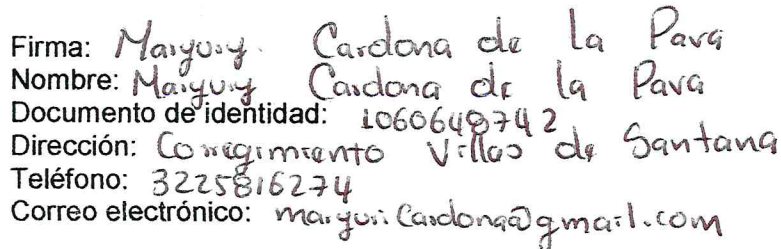 Firma: Maryury. Cardona de la Pava
Nombre: Maryury Cardona de la Pava
Documento de identidad: 1060648742
Dirección: Corregimiento Villas de Santana
Teléfono: 3225816274
Correo electrónico: maryuri.Cardona@gmail.com